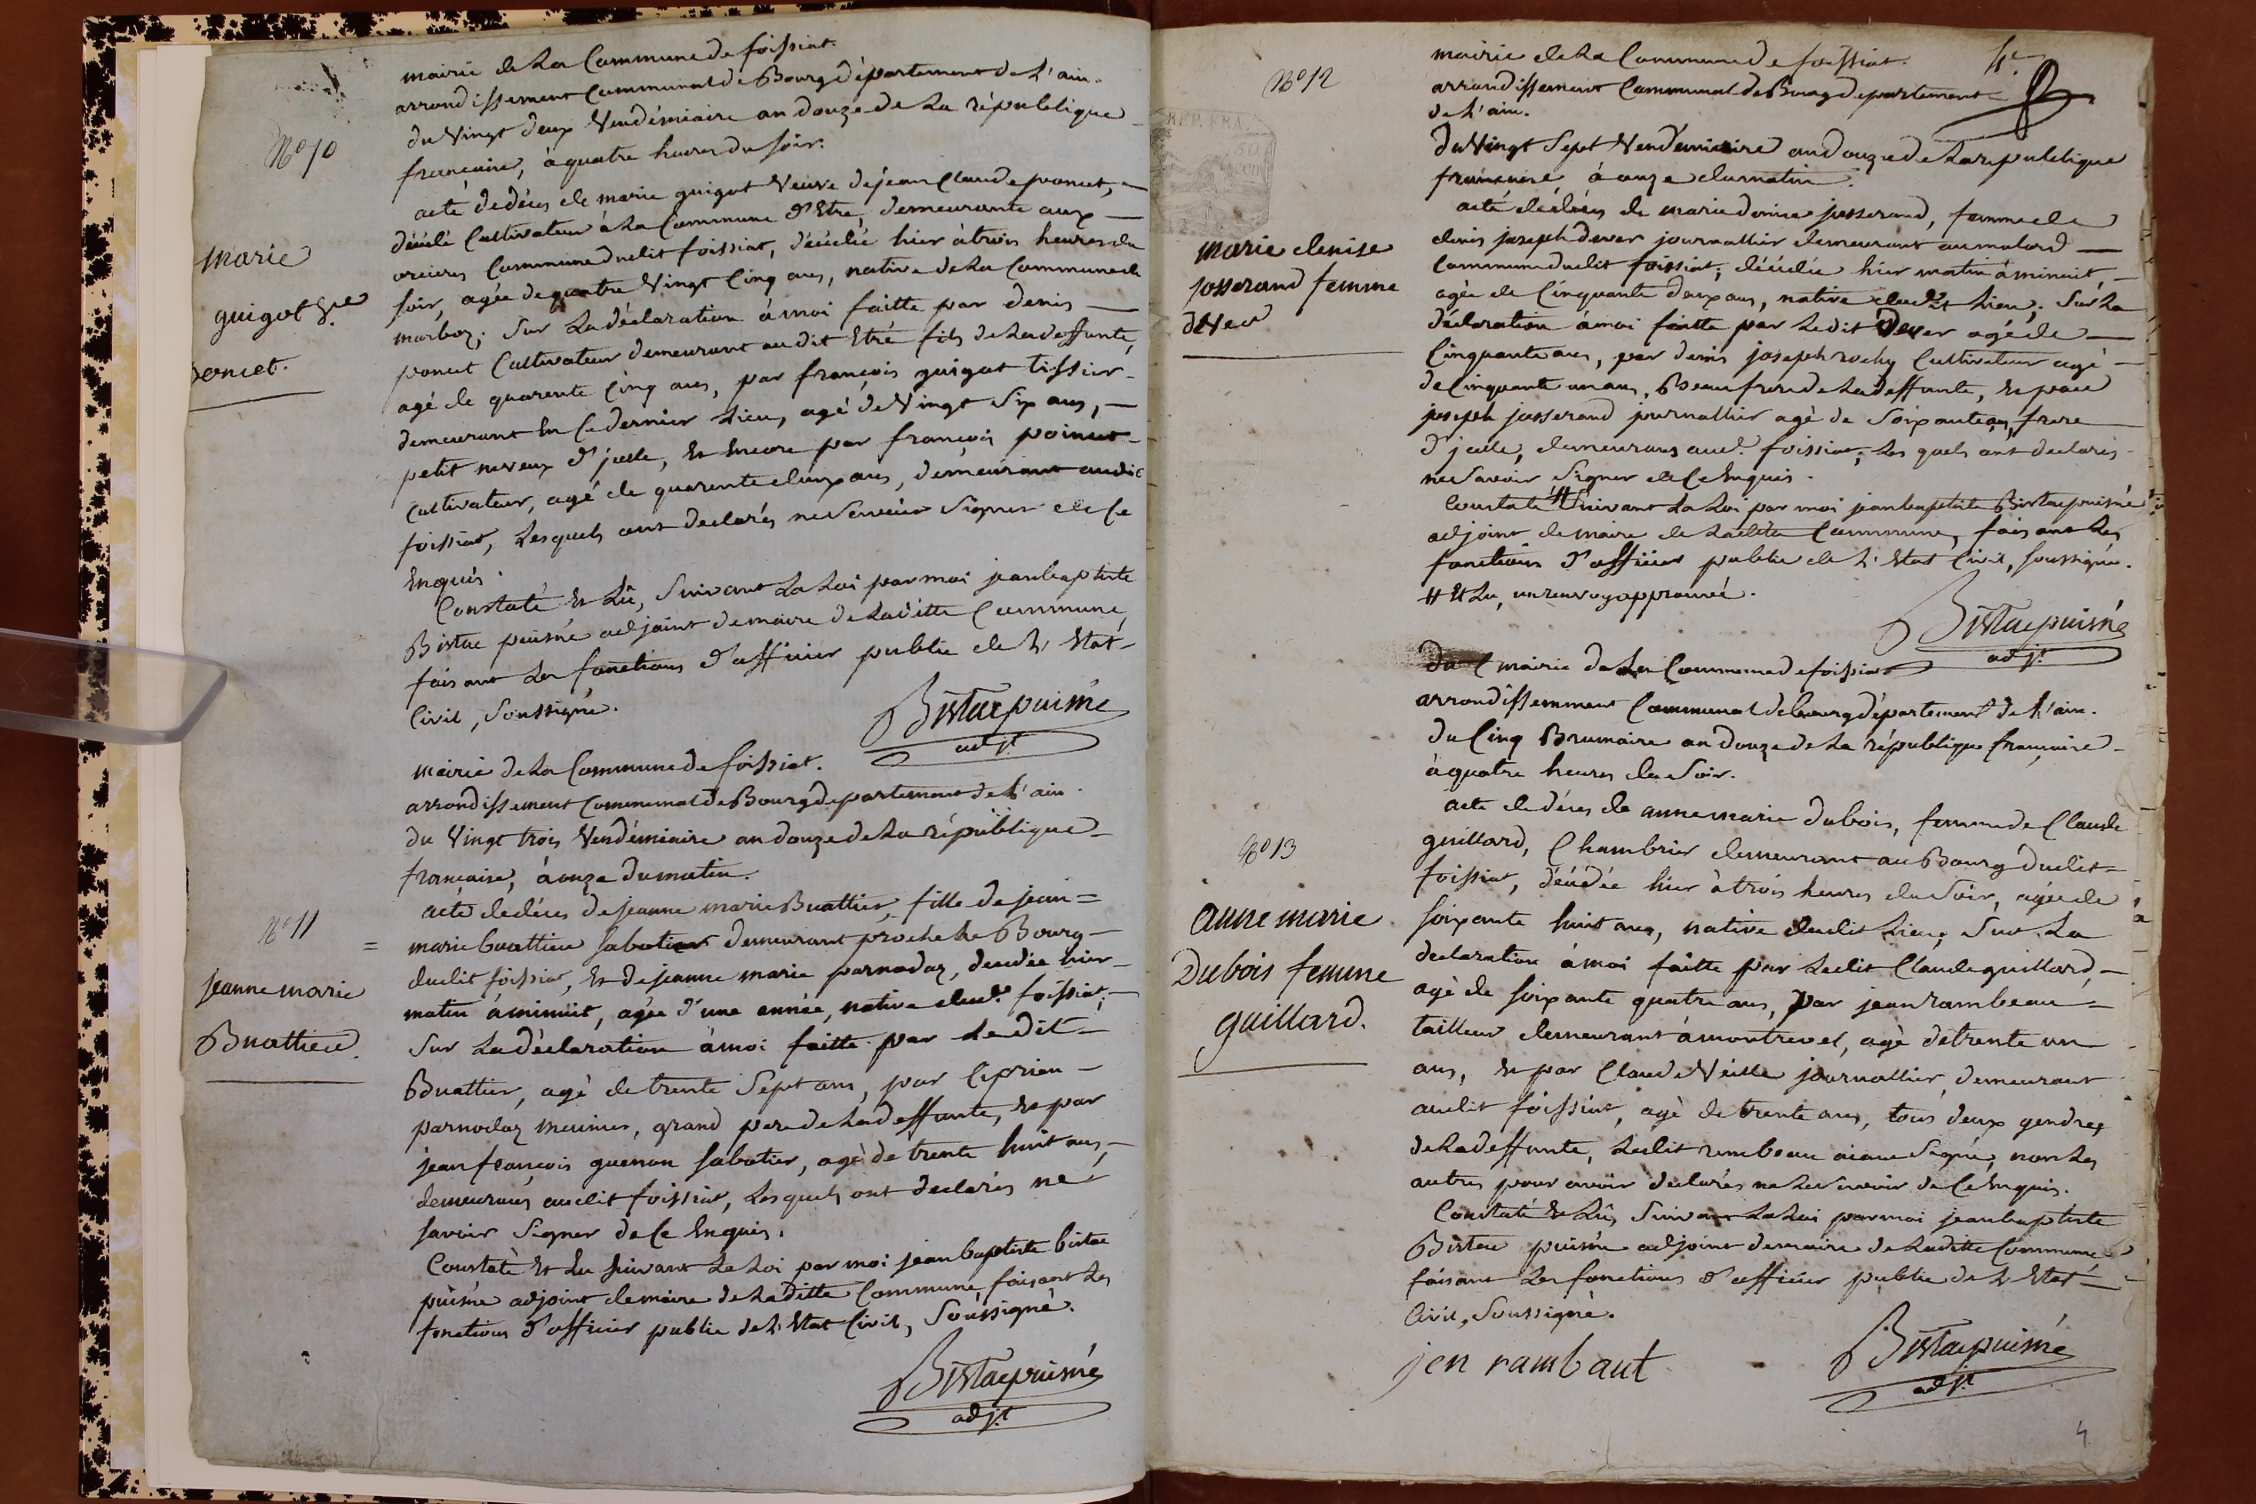 mairie de La Commune de foissiat.
arrondissement Communal de Bourg département de L'ain.
du Vingt deux Vendémiaire an douze de La république
francaise, à quatre heures du soir.
N.º 10
marie
guigot V.ve
poncet.
acte de décès de marie guigot Veuve de jean Claude poncet,
décédé Cultivateur à La Commune d'Etré, demeurante aux
orcieres Commune dudit foissiat, décédée hier à trois heures du
soir, agée de quatre Vingt Cinq ans, native de La Commune de
marboz; Sur La déclaration à moi faitte par denis
poncet Cultivateur demeurant au dit Etré fils de La deffunte,
agé de quarente Cinq ans, par françois guigot tissier
demeurant En Ce dernier Lieu, agé de Vingt Six ans,
petit neveux d'jcelle, Et Encore par françois poincet
Cultivateur, agé de quarente deux ans, demeurant audit
foissiat, Lesquels ont declarés ne Scavoir Signer de Ce
Enquis.
Constaté Et Lû, Suivant La Loi par moi jean baptiste
Bistac puisné adjoint de maire de Laditte Commune,
faisant Les fonctions d'officier publie de L'Etat
Civil, Soussigné.
Bistac puisné
adj.t
mairie de La Commune de foissiat.
arrondissement Communal de Bourg département de L'ain.
du Vingt trois Vendémiaire an douze de La république
française, à onze du matin.
N.º 11
jeanne marie
Buattier.
acte de décès de jeanne marie Buattier, fille de jean =
= marie buattier sabotier demeurant proche Le Bourg
dudit foissiat, Et de jeanne marie parnodaz, decedée hier
matin à minuit, agée d'une année, native dud.t foissiat;
Sur La déclaration à moi faitte par Le dit
Buattier, agé de trente Sept ans, par Ciprien
parnodaz meunier, grand pere de La deffunte, Et par
jean françois guenon sabotier, agé de trente huit ans,
demeurans audit foissiat, Lesquels ont declarés ne
savoir Signer de Ce Enquis.
Constaté Et Lu suivant La Loi par moi jean baptiste bistac
puisné adjoint de maire de Laditte Commune, faisant Les
fonctions d'officier publie de L'Etat Civil, Soussigné.
Bistac puisné
adj.t
4.e
mairie de La Commune de foissiat.
arrondissement Communal de Bourg departement
de L'ain.
REP. FRA.
N.º 12
du Vingt Sept Vendemiaire an douze de La republique
francaise à onze du matin.
marie denise
josserand femme
dever
acte de décès de marie denise josserand, femme de
denis joseph dever journallier demeurant au malard
Commune dudit foissiat, décédée hier matin à minuit,
agée de Cinquante deux ans, native dudit Lieu; Sur La
déclaration à moi faitte par Ledit Dever agé de
Cinquante ans, par denis joseph rochy Cultivateur agé
de Cinquante un ans, Beaufrere de La deffunte, Et par
joseph josserand journallier agé de Soixante ans, frere
d'jcelle, demeurans aud.t foissiat; Lesquels ont declarés
ne Savoir Signer de Ce Enquis.
Constaté # Suivant La Loi par moi jean baptiste Bistac puisné
adjoint de maire de Ladite Commune, faisant Les
fonctions d'officier publie de L'Etat Civil, soussigné.
# Et Lu, un renvoy approuvé.
Bistac puisné
adj.t
mairie de La Commune de foissiat
arrondissemment Communal de bourg département de L'ain.
du Cinq Brumaire an douze de La république francaise
à quatre heures du Soir.
N.º 13
anne marie
Dubois femme
guillard.
acte de déces de anne marie dubois, femme de Claude
guillard, Chambrier demeurant au Bourg dudit =
foissiat, décédée hier à trois heures du Soir, agée de
soixante huit ans, native dudit Lieu, Sur La
declaration à moi faitte par Ledit Claude guillard,
agé de soixante quatre ans, par jean rambeau =
tailleur demeurant à montrevel, agé de trente un
ans, Et par Claude Veille journallier demeurant
audit foissiat, agé de trente ans, tous deux gendres
de La deffunte, Ledit rambeau aiant Signé, non Les
autres pour avoir declarés ne Le Scavoir de Ce Enquis.
Constaté Et Lû, Suivant La Loi par moi jean baptiste
Bistac puisné adjoint de maire de Laditte Commune
faisant Les fonctions d'officier publie de L'Etat
Civil, Soussigné.
jen rambaut
Bistac puisné
adj.t
4